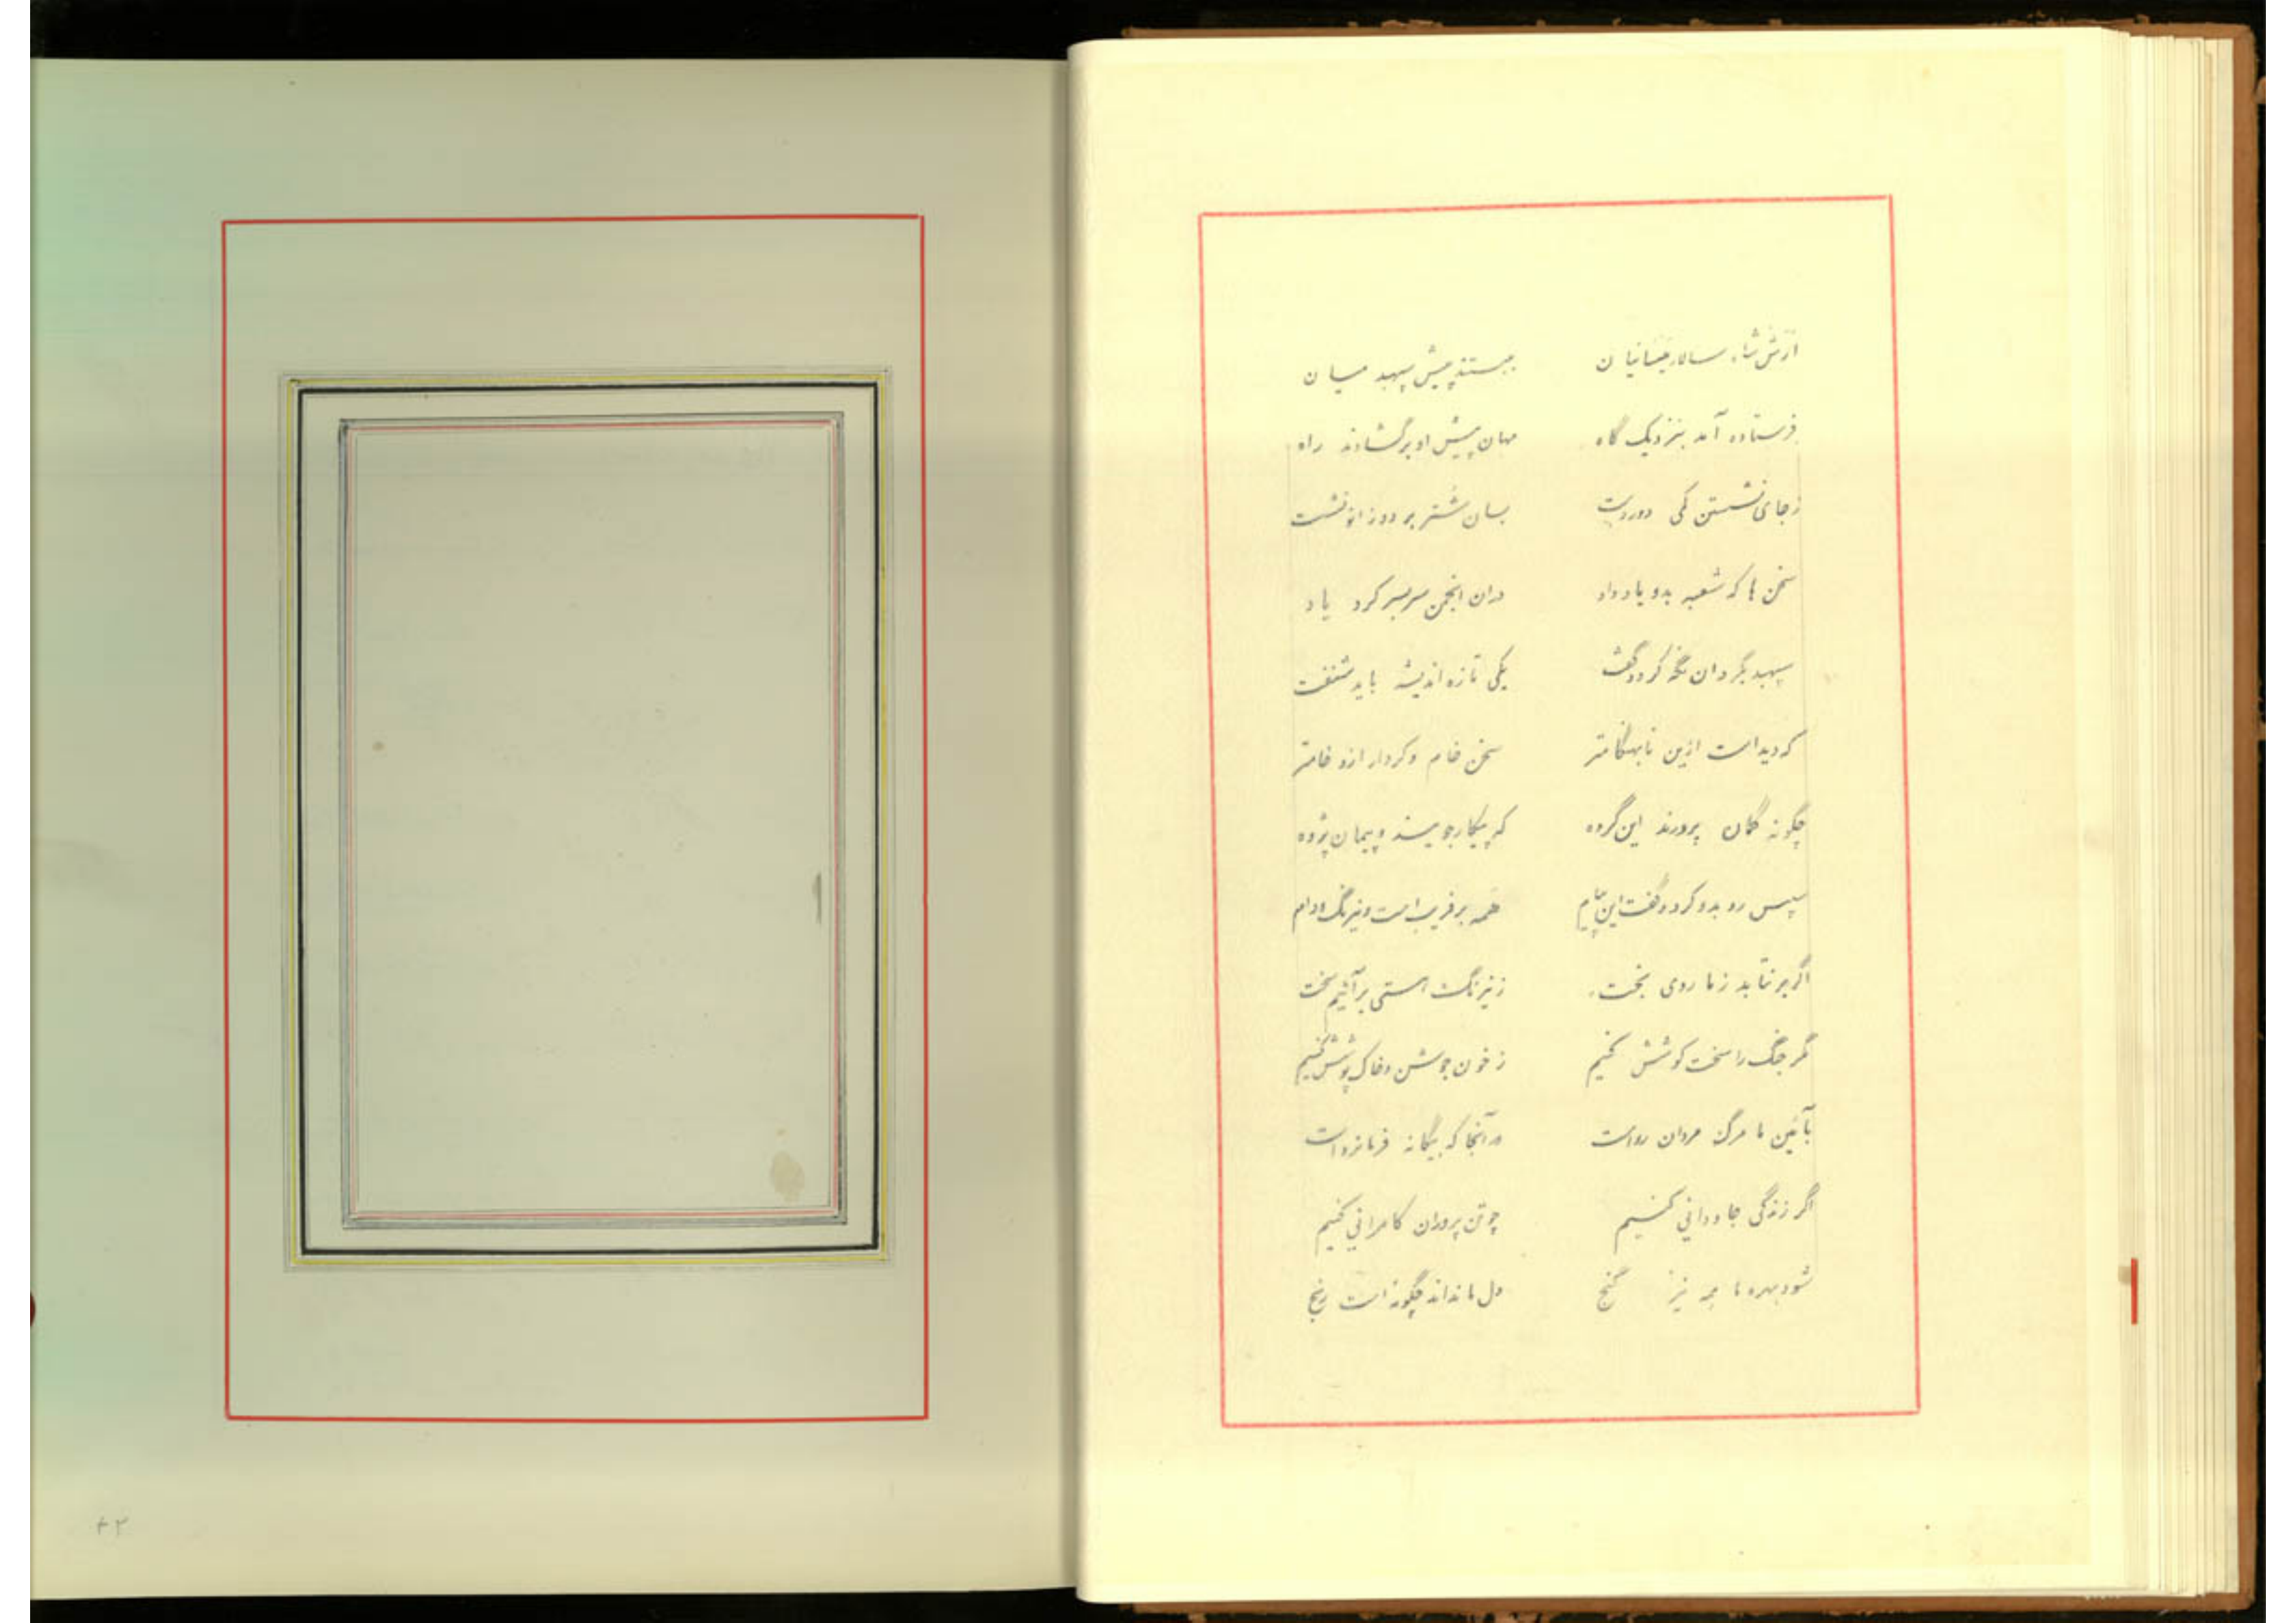 ارتش شاه سالار غسانیان ببستند پیش سپهبد میان
فرستاده آمد بنزدیک گاه مهان پیش او برگشادند راه
زجای نشستن کمی دور دست بسان شتر بر دو زانو نشست
سخن ها که شعبه بدو یاد داد در ان انجمن سربسر کرد یاد
سپهبد بگردان نگه کرد و گفت یکی تازه اندیشه باید شنفت
که دیداست ازین نابهنگامتر سخن خام و کردار ازو خامتر
چگونه گمان پرورند این گروه که پیکارجویند و پیمان پژوه
سپس رو بدو کرد و گفت این پیام همه بر فریب است و نیرنگ و دام
اگر بر نتابد زما روی بخت زنیرنگ هستی برآئیم سخت
مگر جنگ را سخت کوشش کنیم زخون جوشن و خاک پوشش کنیم
بآئین ما مرگ مردان رواست در آنجا که بیگانه فرمانرواست
اگر زندگی جاودانی کنیم چو تن پروران کامرانی کنیم
شود بهره ما همه نیز گنج دل ما نداند چگونه است رنج